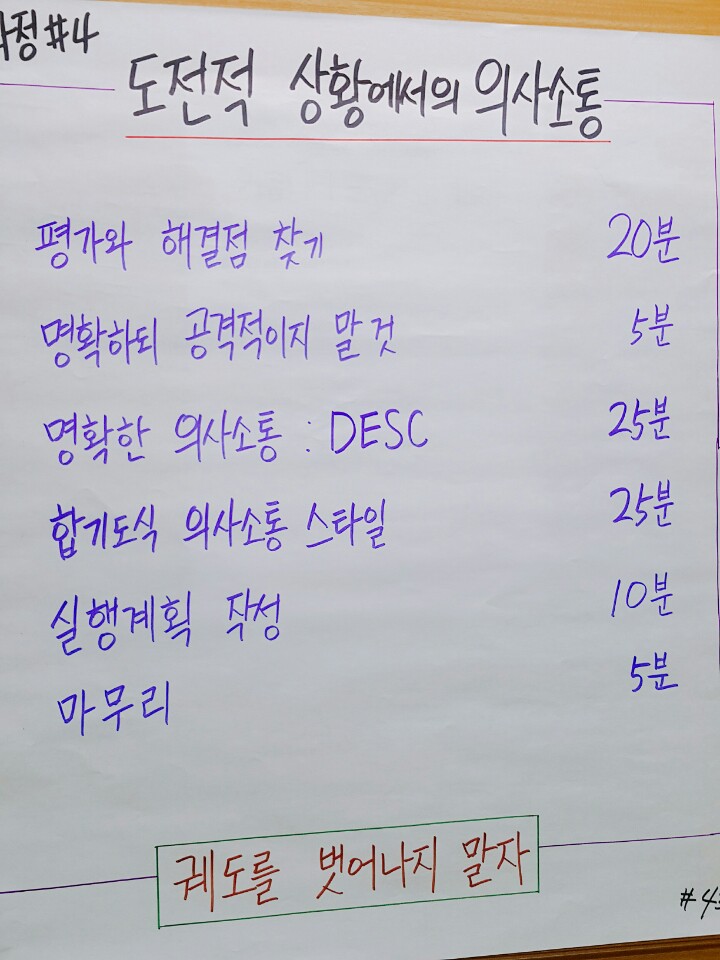 #4
도전적 상황에서의 의사소통
평가와 해결점 찾기 20분
명확하되 공격적이지 말것 5분
명확한 의사소통 : DESC 25분
합기도식 의사소통 스타일 25분
실행계획 작성 10분
마무리 5분
궤도를 벗어나지 말자